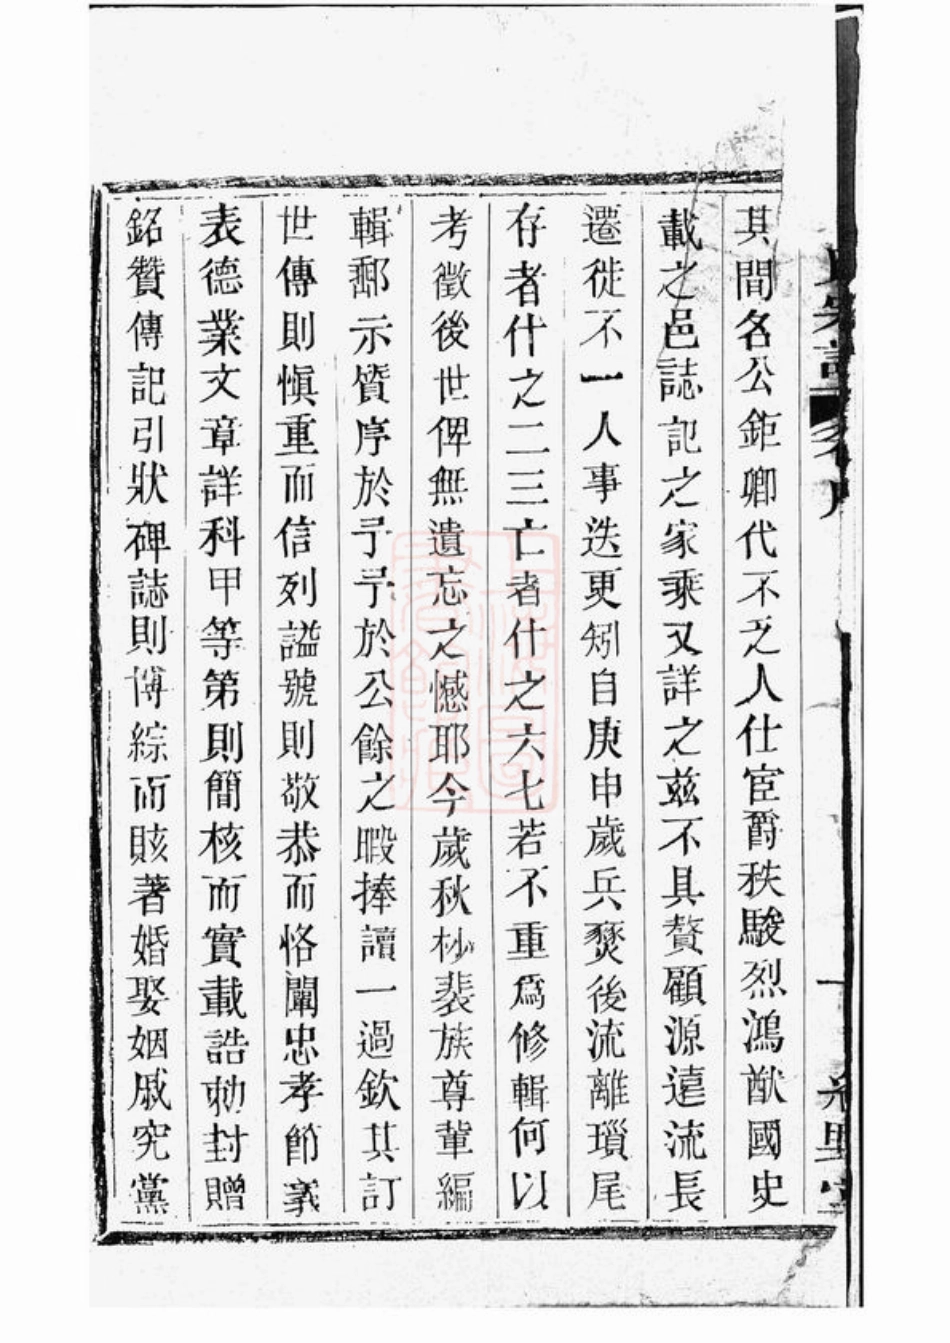 其間名公鉅卿代不乏人仕宦爵秩駿烈鴻猷國史
載之邑誌記之家乘又詳之茲不具贅顧源遠流長
遷徙不一人事迭更矧自庚申歲兵燹後流離瑣尾
存者什之二三亡者什之六七若不重爲修輯何以
考徵後世俾無遺忘之憾耶今歲秋杪裴族尊輩編
輯鄱示質序於予予於公餘之暇捧讀一過欽其訂
世傳則愼重而信列謚號則敬恭而恪闡忠孝節義
表德業文章詳科甲等第則簡核而實載誥勅封贈
銘贊傳記引狀碑誌則博綜而賅著婚娶姻戚究黨